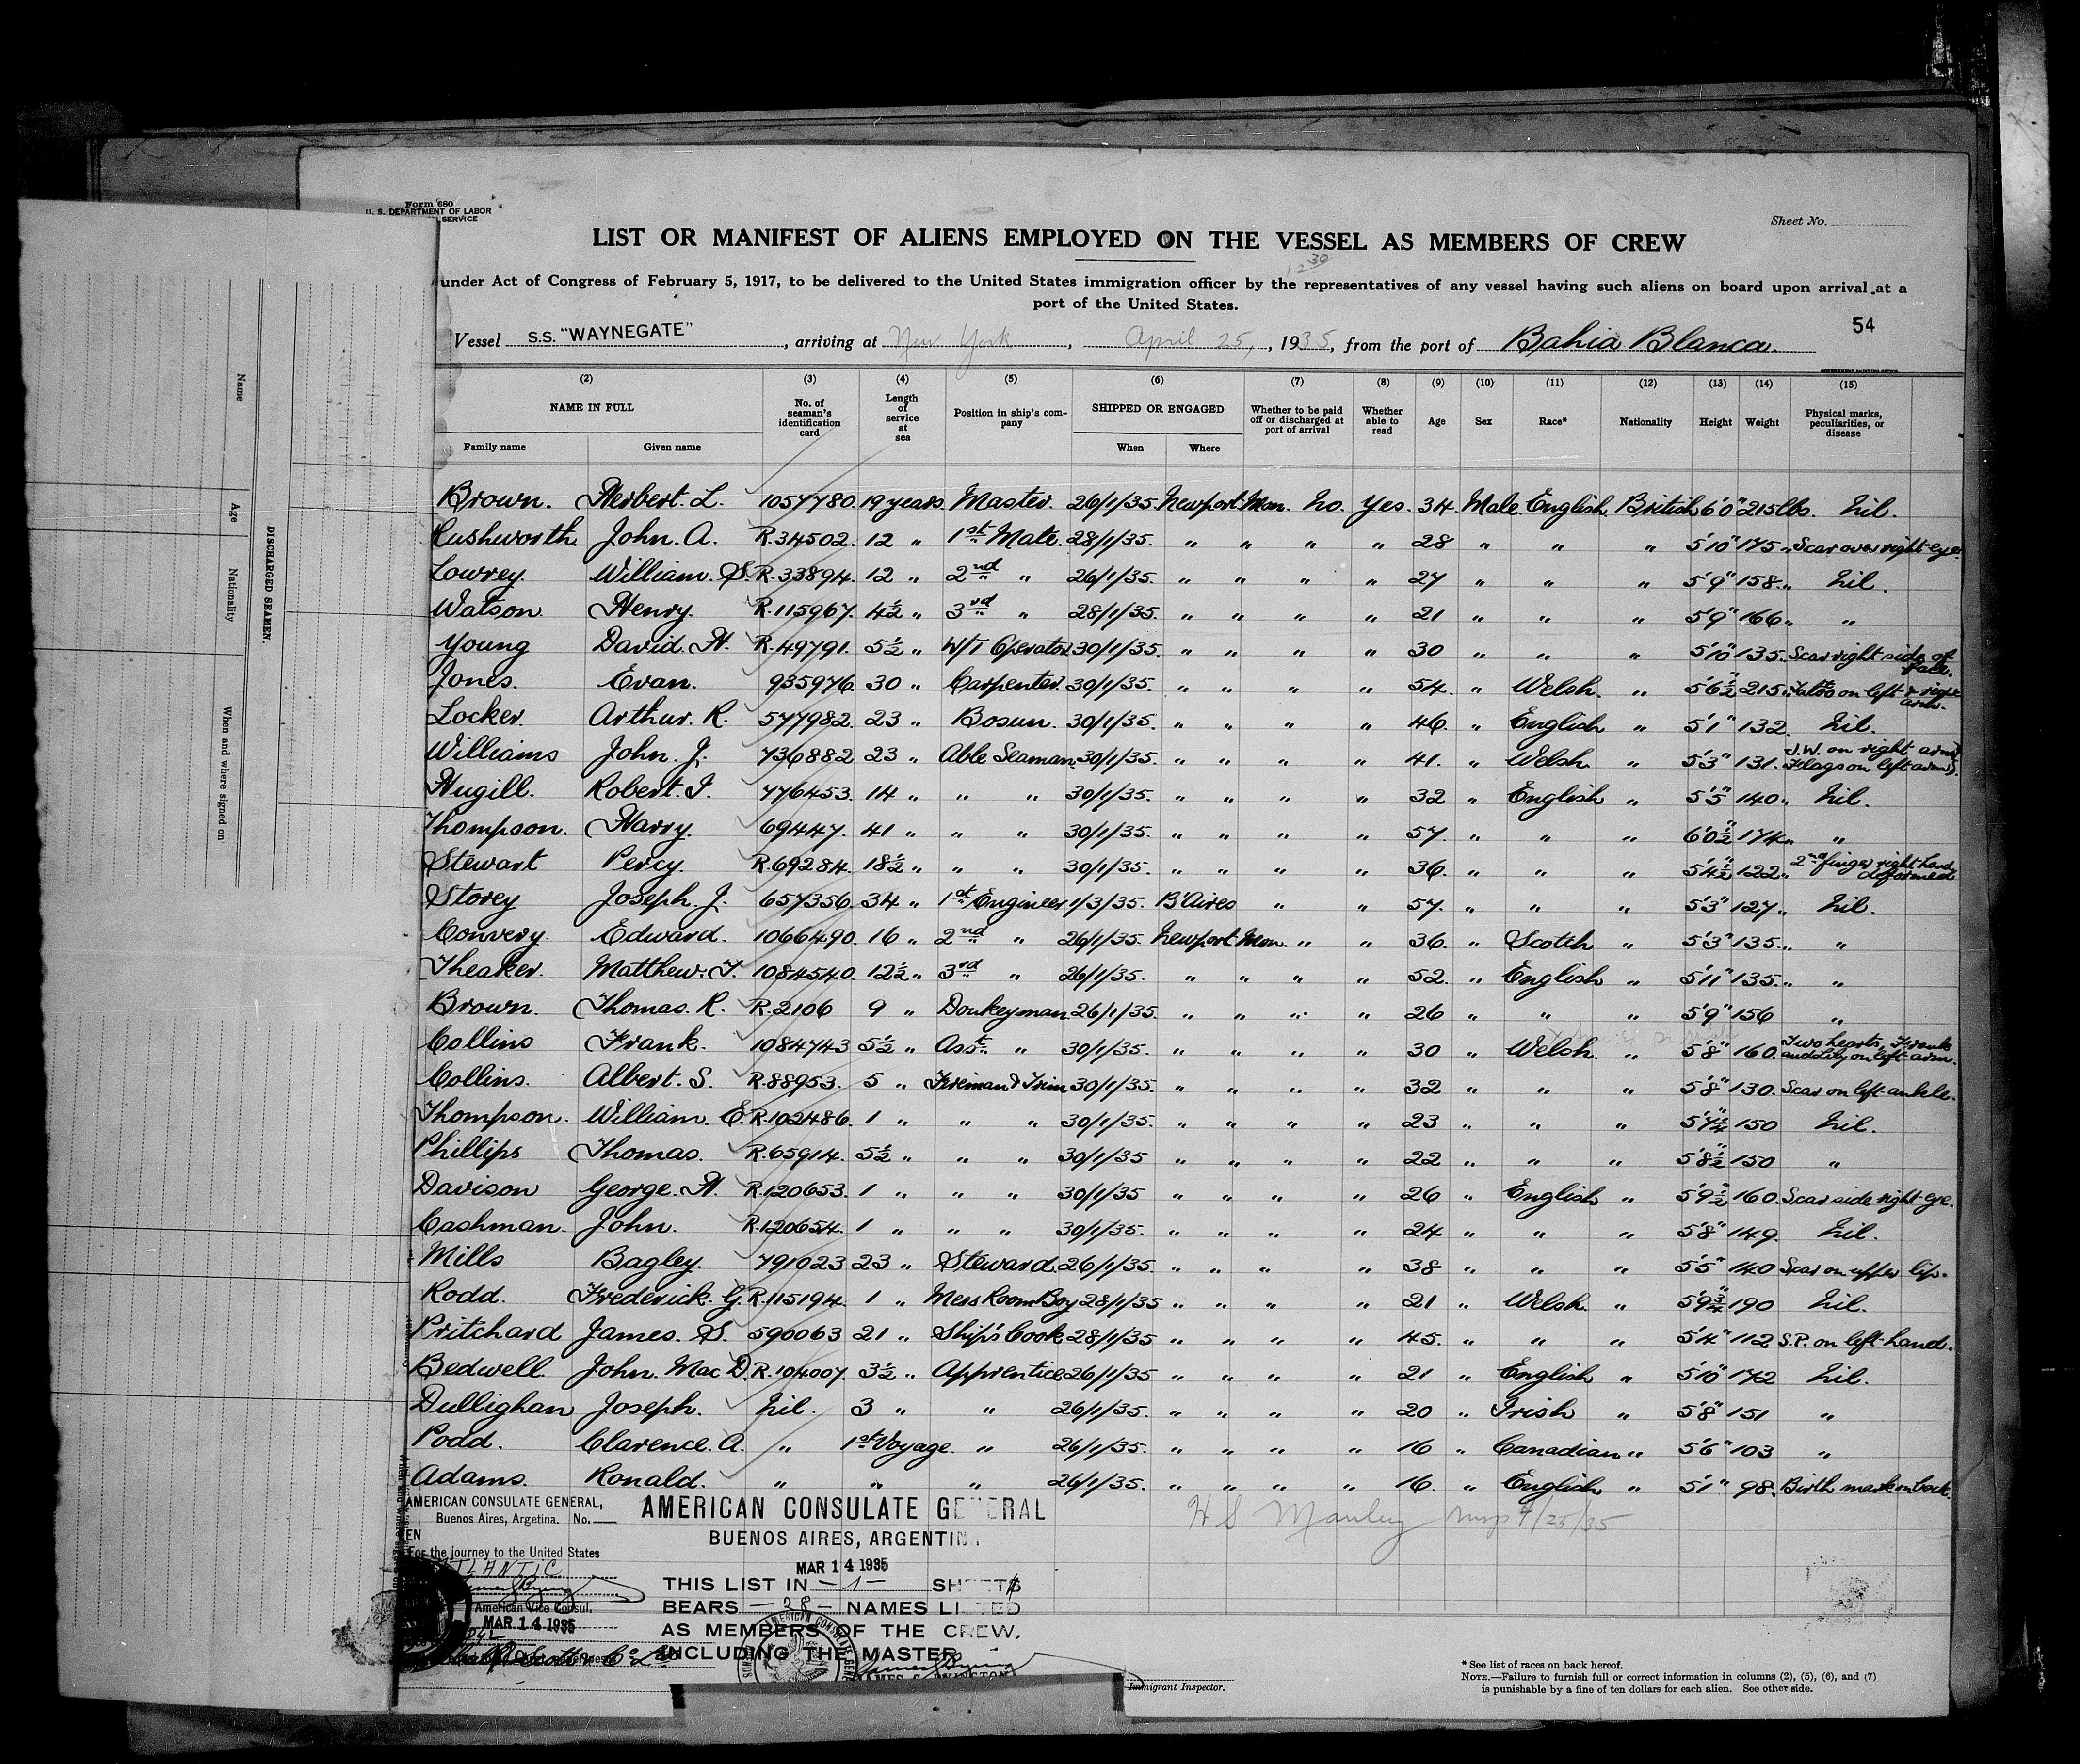 Form 680
U. S. DEPARTMENT OF LABOR
SERVICE
Sheet No.
LIST OR MANIFEST OF ALIENS EMPLOYED ON THE VESSEL AS MEMBERS OF CREW
12 30
under Act of Congress of February 5, 1917, to be delivered to the United States immigration officer by the representatives of any vessel having such aliens on board upon arrival at a
port of the United States.
54
Vessel S.S. "WAYNEGATE", arriving at New York, April 25, 1935, from the port of Bahia Blanca.
(2) (3) (4) (5) (6) (7) (8) (9) (10) (11) (12) (13) (14) (15)
NAME IN FULL No. of seaman's identification card Length of service at sea Position in ship's company SHIPPED OR ENGAGED Whether to be paid off or discharged at port of arrival Whether able to read Age Sex Race* Nationality Height Weight Physical marks, peculiarities, or disease
Family name Given name When Where
Brown. Herbert. L. 1057780. 19 years. Master. 26/1/35. Newport Mon. No. Yes. 34. Male. English. British 6'0" 215 lbs. Nil.
Cushworth John. A. R.34502. 12 " 1st Mate. 28/1/35. " " " " 28 " " " 5'10" 175 " Scar over right eye.
Lowrey. William. S. R.33894. 12 " 2nd " 26/1/35. " " " " 27 " " " 5'9" 158 " Nil.
Watson. Henry. R.115967. 4½ " 3rd " 28/1/35. " " " " 21 " " " 5'9" 166 " "
Young David. H. R.49791. 5½ " W/T Operator. 30/1/35. " " " " 30 " " " 5'10" 135. Scar right side of face.
Jones. Evan. 935976. 30 " Carpenter. 30/1/35. " " " " 54. " Welsh. " 5'6½" 215 " Tatoo on left & right arm.
Locker. Arthur. R. 577982. 23 " Bosun. 30/1/35. " " " " 46. " English " 5'1" 132. Nil.
Williams John. J. 736882 23 " Able Seaman. 30/1/35. " " " " 41. " Welsh. " 5'3" 131. J.W. on right arm Flags on left arm.
Hugill. Robert. I. 776453. 14 " " " 30/1/35. " " " " 32 " English " 5'5" 140 " Nil.
Thompson. Harry. 69447. 41 " " " 30/1/35. " " " " 57. " " " 6'0½" 174 " "
Stewart Percy. R.69284. 18½ " " " 30/1/35. " " " " 36. " " " 5'4½" 122 " 2nd finger right hand deformed
Storey Joseph. J. 657356. 34 " 1st Engineer 1/3/35. B'Aires " " 57. " " " 5'3" 127 " Nil.
Convery. Edward. 1066490. 16 " 2nd " 26/1/35. Newport Mon. " " 36. " Scotch " 5'3" 135 " "
Theaker. Matthew. T. 1084540. 12½ " 3rd " 26/1/35. " " " " 52. " English " 5'11" 135 " "
Brown. Thomas. R. R.2106 9 " Donkeyman 26/1/35. " " " " 26 " " " 5'9" 156 "
Collins Frank. 1084743 5½ " Asst. " 30/1/35. " " " " 30 " Welsh. " 5'8" 160. Two hearts, Frank and Lily on left arm.
Collins. Albert. S. R.88953. 5 " Fireman & Trim 30/1/35. " " " " 32 " " " 5'8" 130. Scar on left ankle.
Thompson. William. E. R.102486. 1 " " " 30/1/35. " " " " 23 " " " 5'7½" 150 Nil.
Phillips Thomas. R.65914. 5½ " " " 30/1/35 " " " " 22 " " " 5'8½" 150 "
Davison George. H. R.120653. 1 " " " 30/1/35 " " " " 26 " English " 5'9½" 160. Scar side right eye.
Cashman. John. R.120654. 1 " " " 30/1/35. " " " " 24 " " " 5'8" 149. Nil.
Mills Bagley. 791023 23 " Steward. 26/1/35. " " " " 38 " " " 5'5" 140 Scar on upper lip.
Rodd. Frederick. G. R.115194. 1 " Mess Room Boy 28/1/35 " " " " 21 " Welsh " 5'9¾" 190 Nil.
Pritchard James. S. 590063 21 " Ship's Cook 28/1/35 " " " " 45. " " " 5'4" 112 S.P. on left hand.
Bedwell. John. Mac D. R.104007. 3½ " Apprentice 26/1/35 " " " " 21 " English " 5'10" 142 Nil.
Dullighan Joseph. Nil. 3 " " 26/1/35. " " " " 20 " Irish " 5'8" 151 "
Podd. Clarence. A. " 1st Voyage. " 26/1/35. " " " " 16 " Canadian " 5'6" 103 "
Adams. Ronald. " " " 26/1/35. " " " " 16. " English " 5'1" 98. Birth mark on back.
H S Manley 4/25/35
AMERICAN CONSULATE GENERAL,
Buenos Aires, Argetina. No.
EN
For the journey to the United States
ATLANTIC
American Vice Consul.
MAR 14 1935
AMERICAN CONSULATE GENERAL
BUENOS AIRES, ARGENTINA
MAR 14 1935
THIS LIST IN -1- SHEETS
BEARS -28- NAMES LISTED
AS MEMBERS OF THE CREW,
INCLUDING THE MASTER
Immigrant Inspector.
* See list of races on back hereof.
NOTE.—Failure to furnish full or correct information in columns (2), (5), (6), and (7)
is punishable by a fine of ten dollars for each alien. See other side.
DISCHARGED SEAMEN.
Name
Age
Nationality
When and where signed on